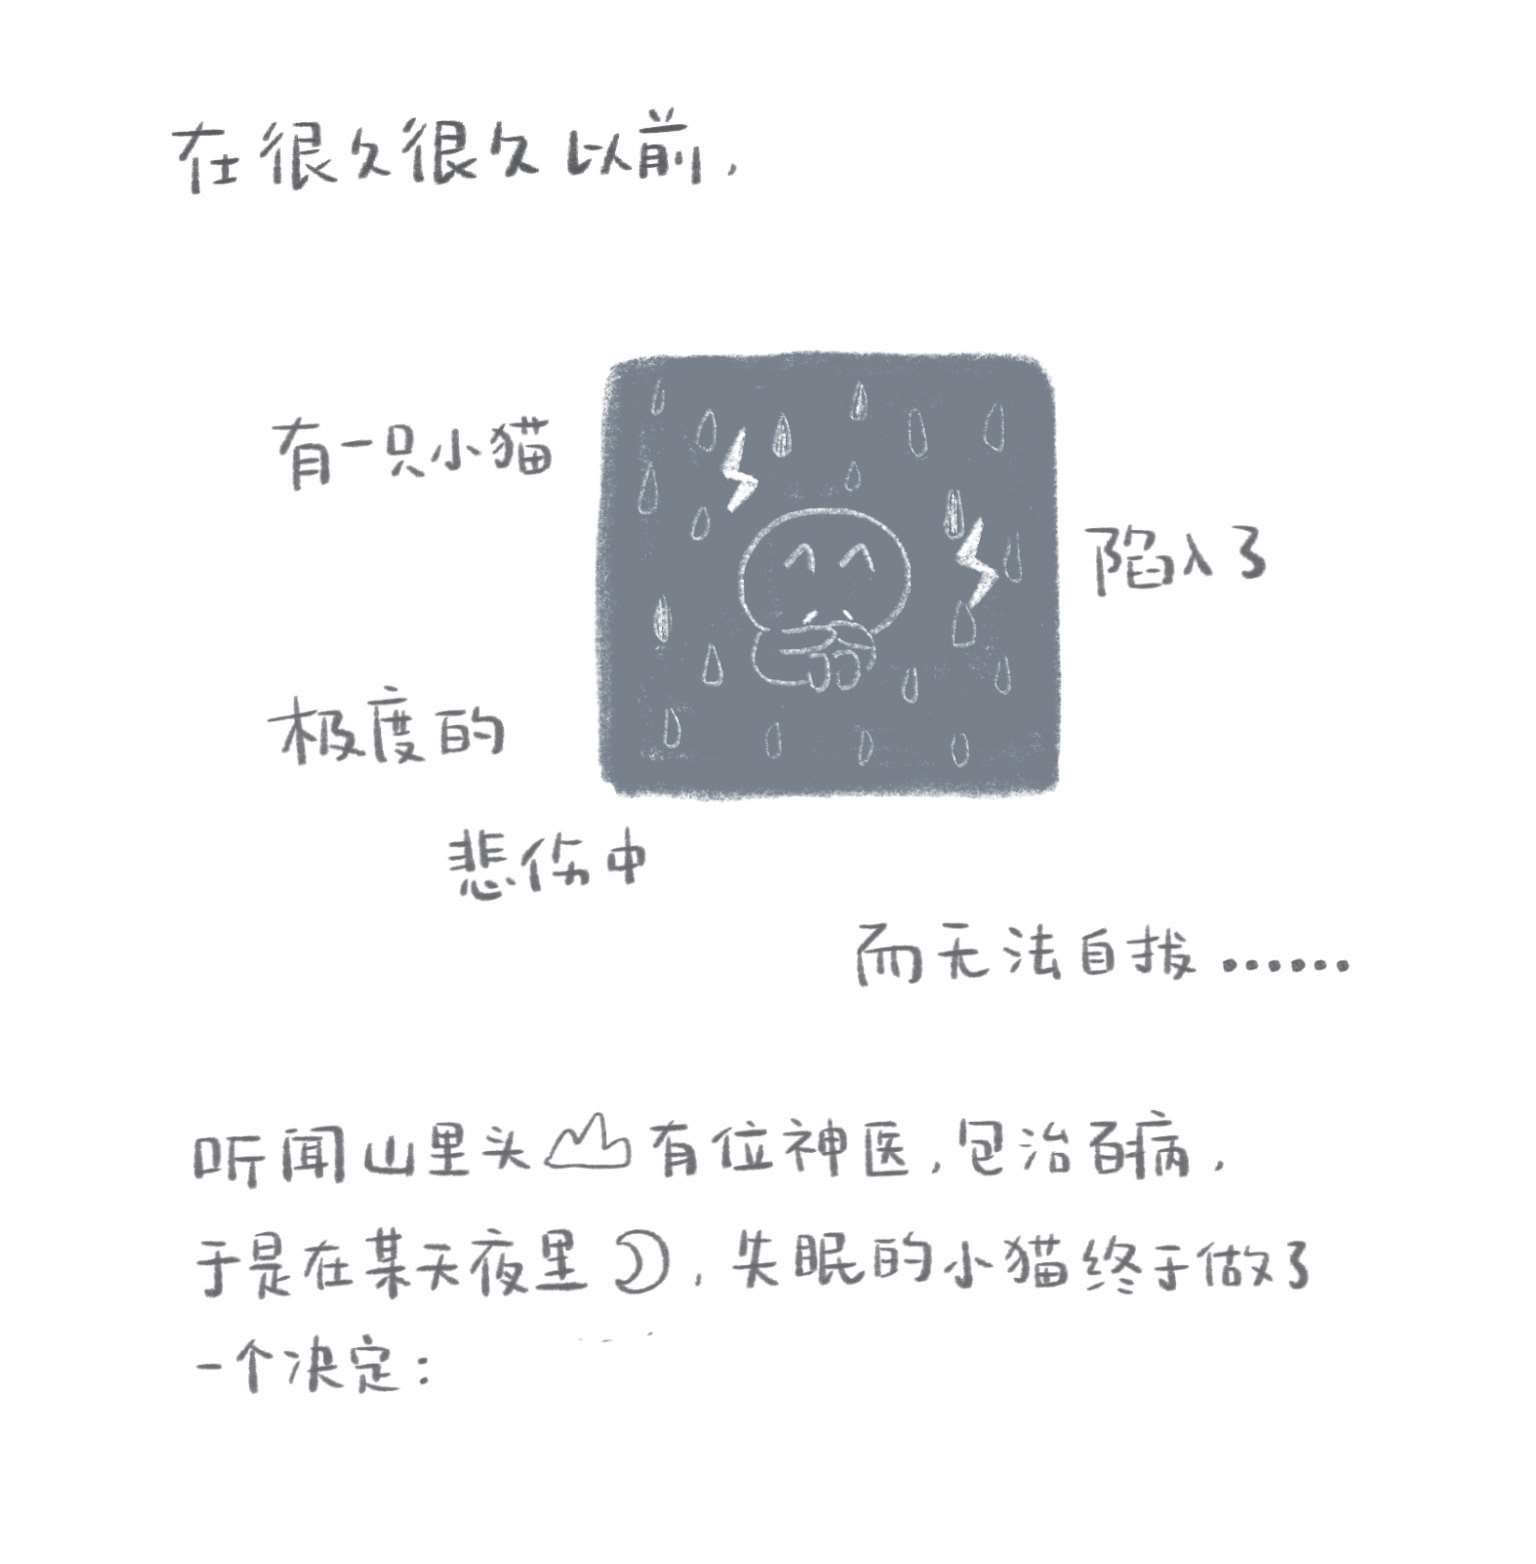 在很久很久以前，
有一只小猫
陷入了
极度的
悲伤中
而无法自拔……
听闻山里头有位神医，包治百病，
于是在某天夜里，失眠的小猫终于做了
一个决定：